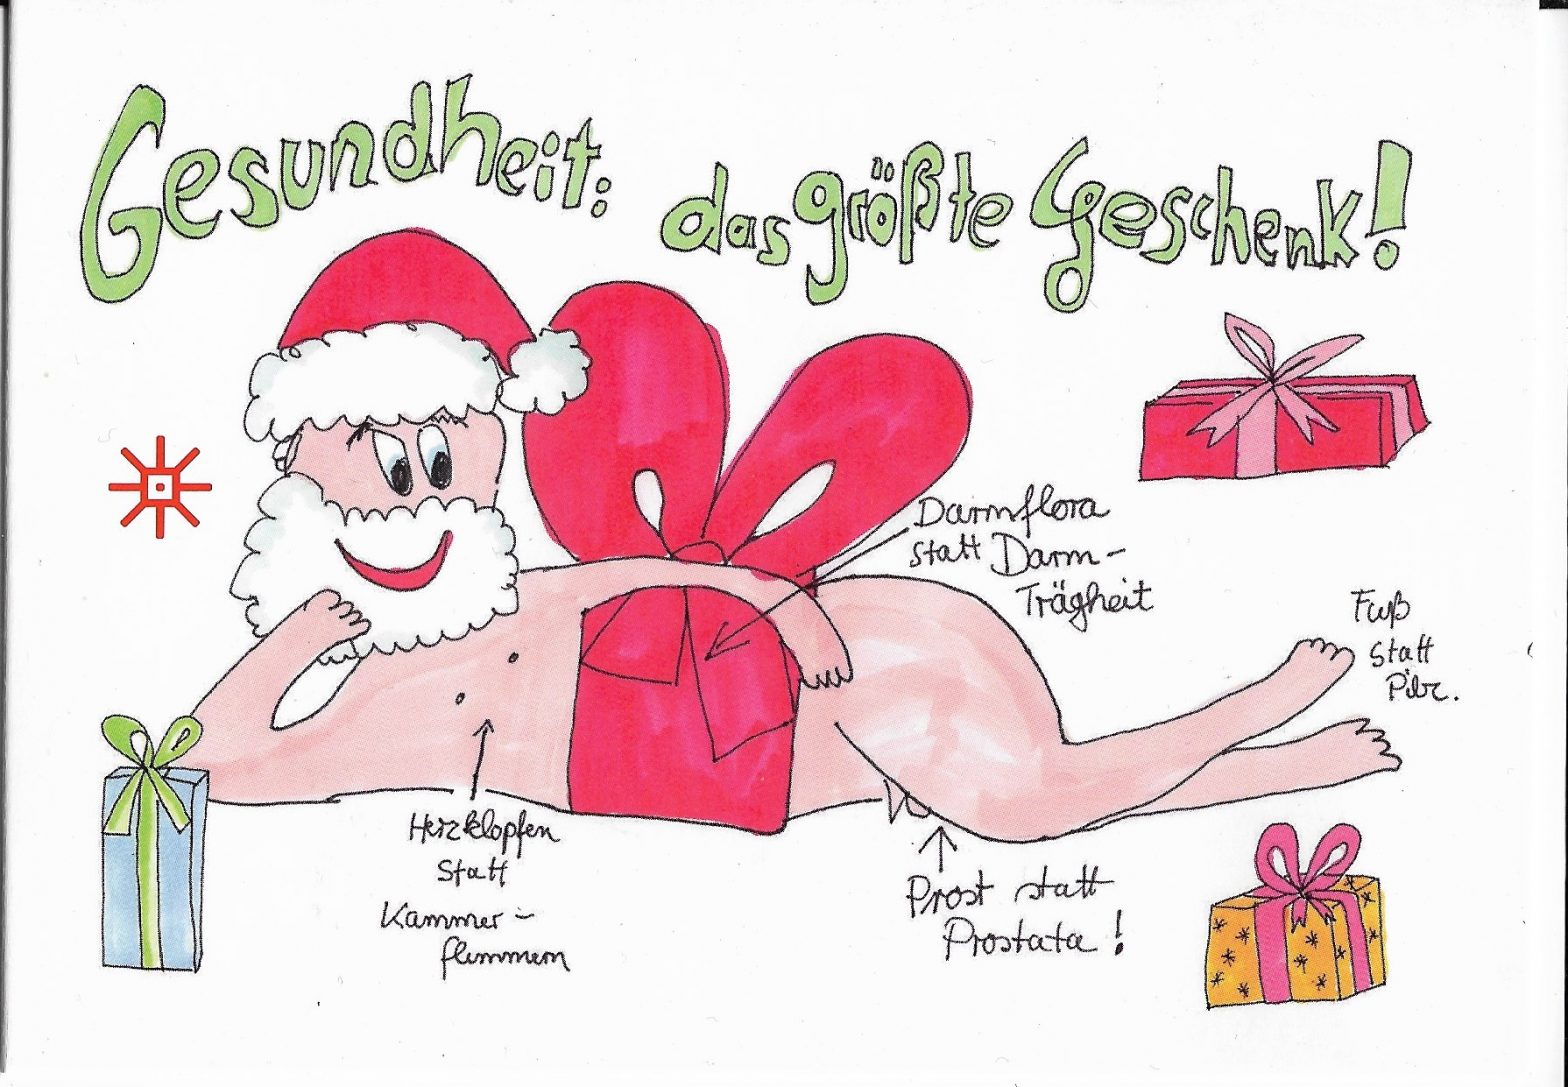 Gesundheit: das größte Geschenk!
Darmflora
statt Darm-
Trägheit
Fuß
statt
Pilz.
Herzklopfen
statt
Kammer-
flimmern
Prost statt
Prostata!